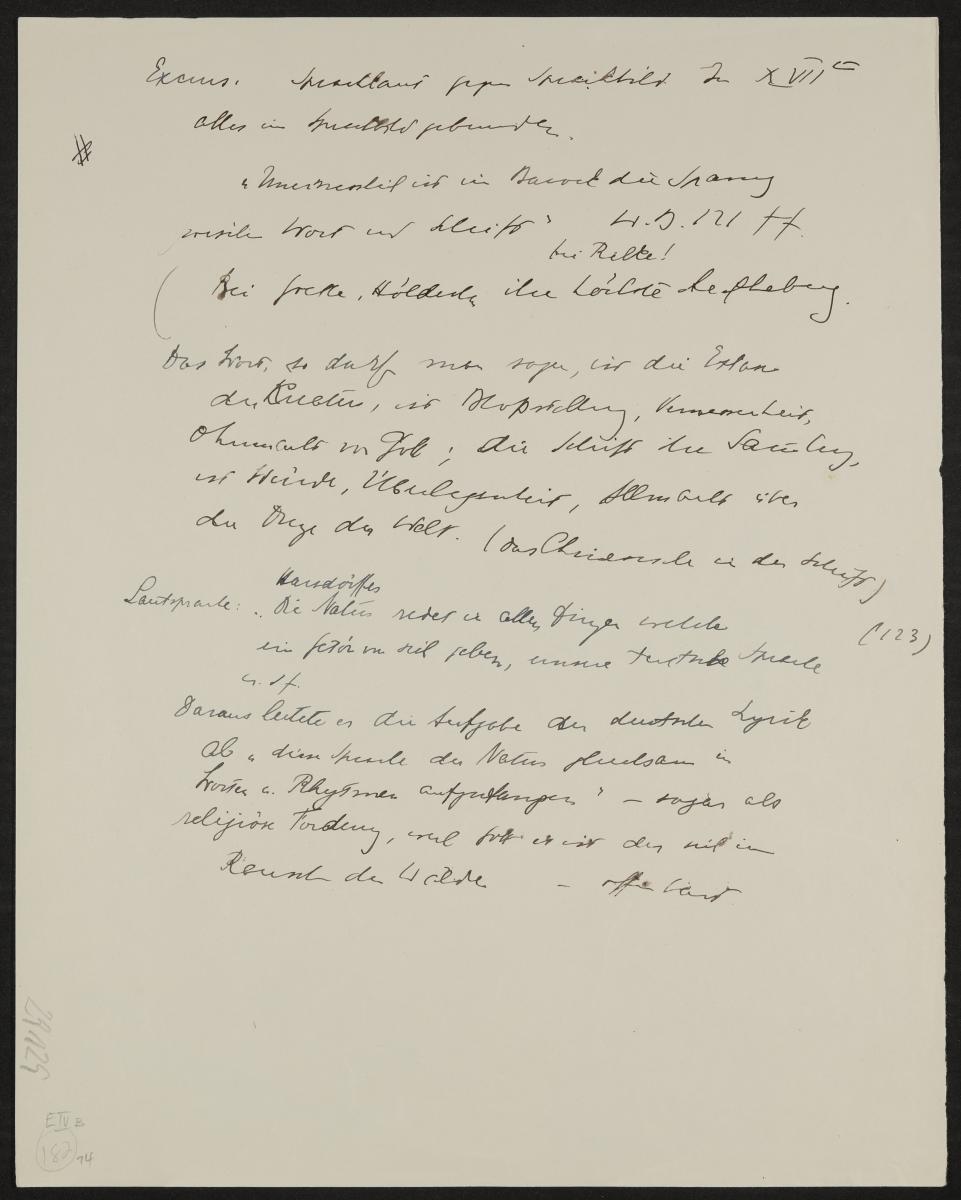 Excurs. Sprachlaut gegen Sprachbild Im XVII
alles im Sprachbild gebunden.
#
„Unermesslich ist im Barock die Spannung
zwischen Wort und Schrift" W.B. 121 ff.
bei Rilke!
(Bei Goethe, Hölderlin ihre höchste Aufhebung.
Das Wort, so darf man sagen, ist die Extase
der Kreatur, ist Bloßstellung, Vermessenheit,
Ohnmacht vor Gott; die Schrift ihre Sammlung,
ist Würde, Überlegenheit, Allmacht über
die Dinge der Welt. (das Chinesische in der Schrift)
Harsdörffer
Lautsprache: „Die Natur redet in allen Dingen welche
(123)
ein Getön von sich geben, unsere teutsche Sprache
u.s.f.
Daraus leitete er die Aufgabe der deutschen Lyrik
ab „diese Sprache der Natur gleichsam in
Worten u. Rhytmen aufzufangen" – sogar als
religiöse Forderung, weil Gott es ist der sich im
Rauschen der Wälder – offenbart
291125
EIV B
182 74